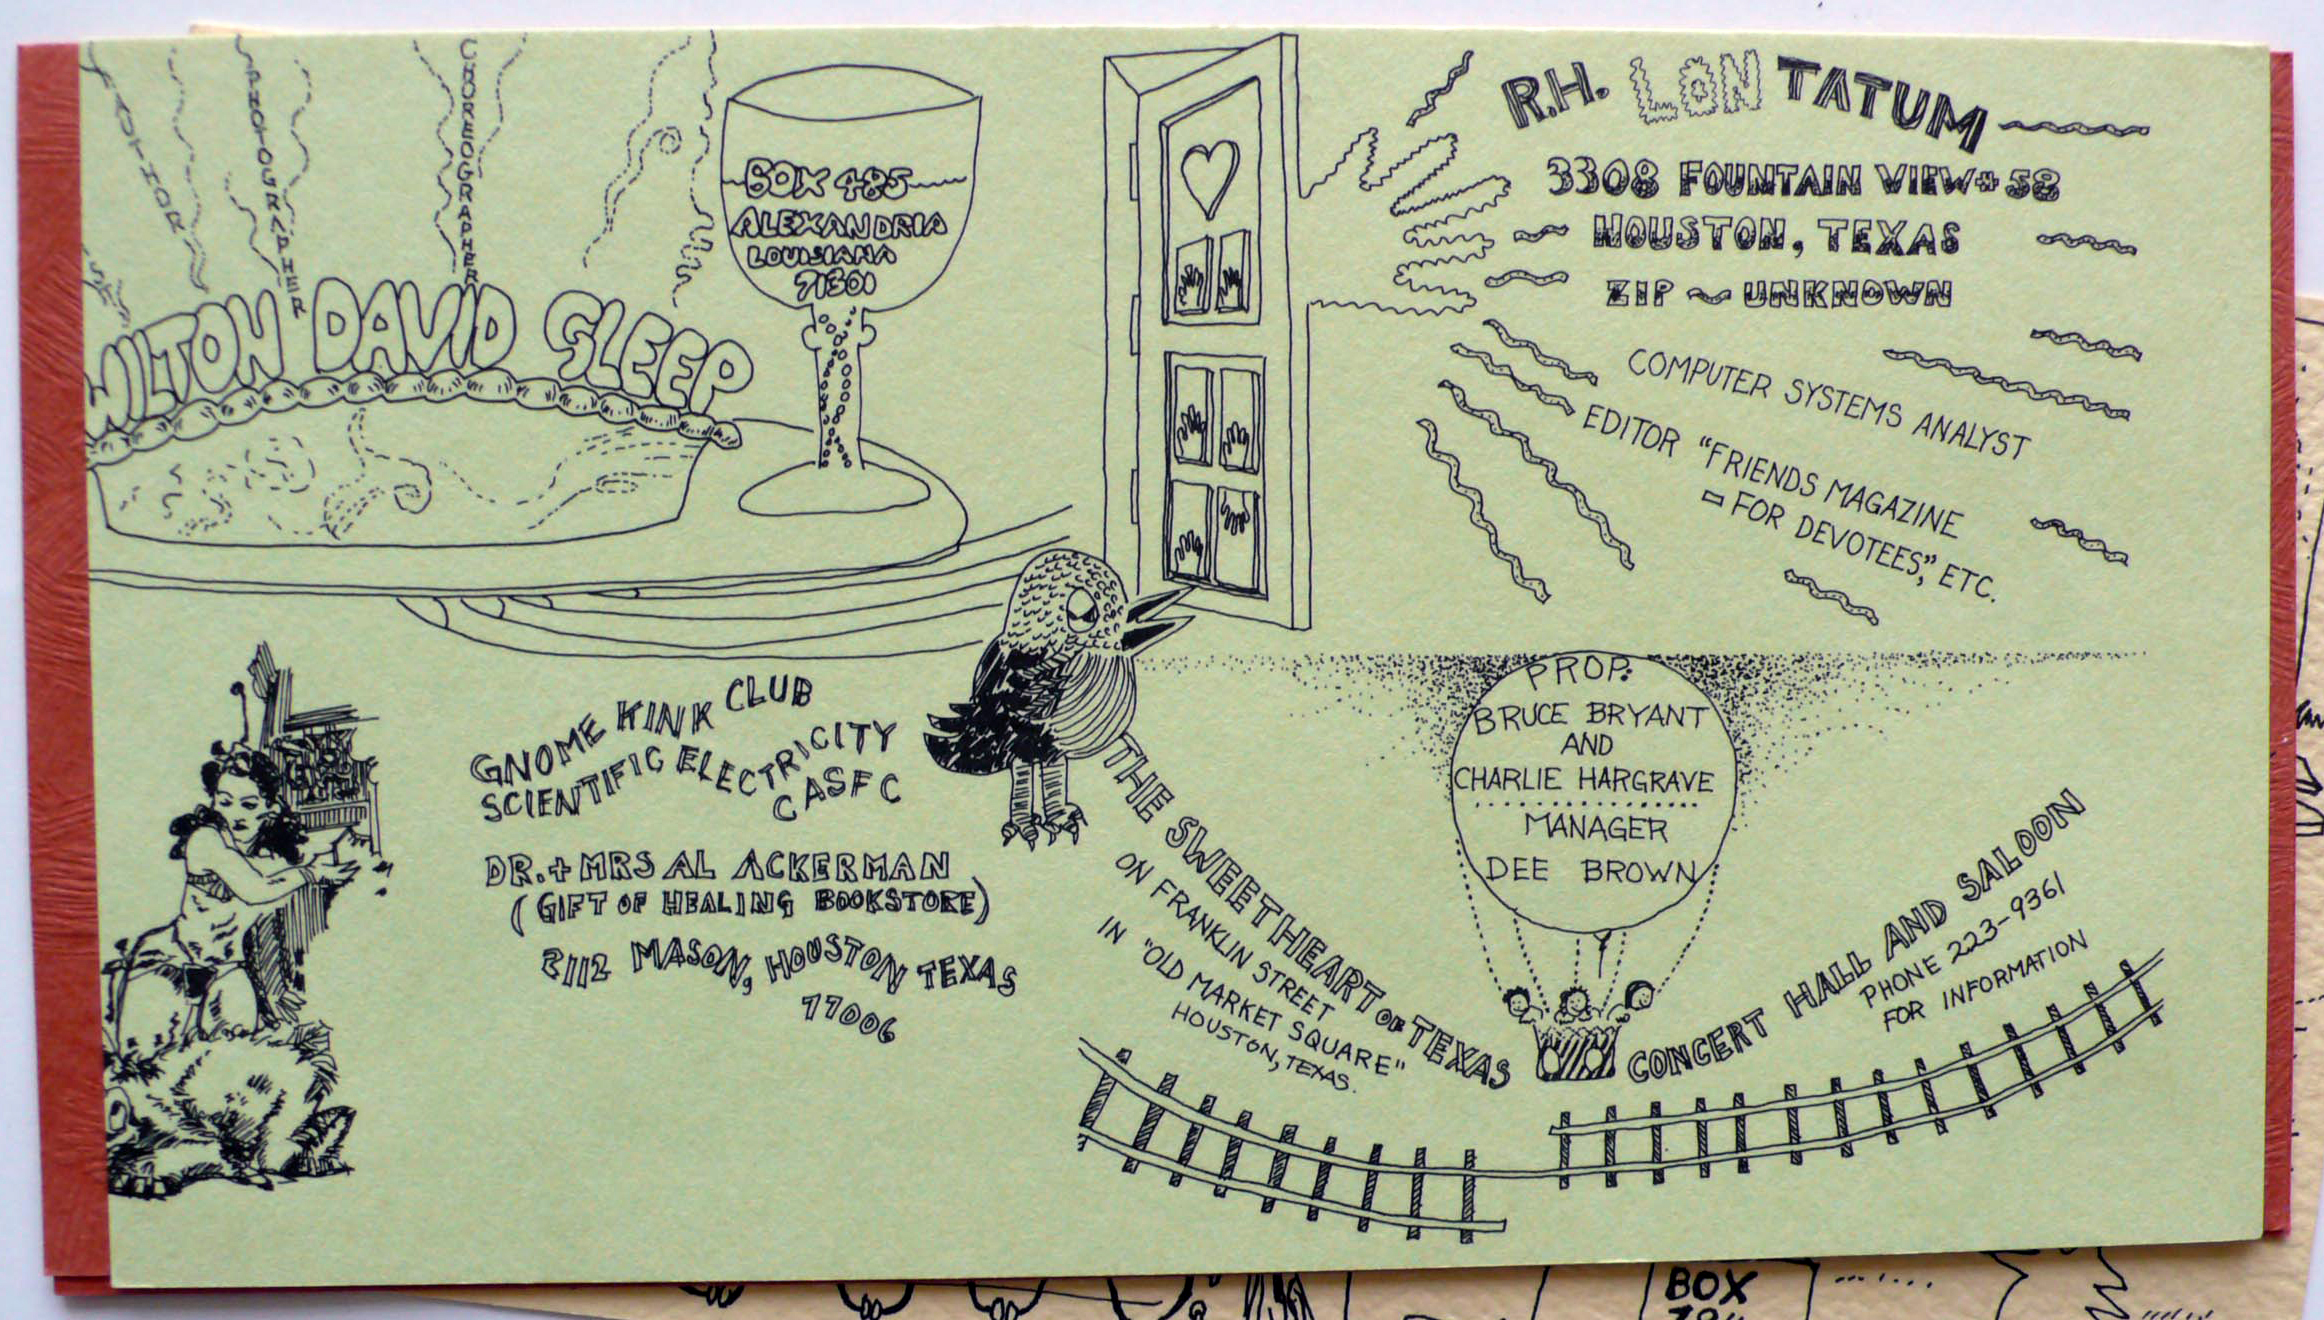 AUTHOR
PHOTOGRAPHER
CHOREOGRAPHER
WILTON DAVID SLEEP
BOX 485
ALEXANDRIA
LOUISIANA
71301
R.H. LON TATUM
3308 FOUNTAIN VIEW # 58
HOUSTON, TEXAS
ZIP ~ UNKNOWN
COMPUTER SYSTEMS ANALYST
EDITOR "FRIENDS MAGAZINE
- FOR DEVOTEES", ETC.
GNOME KINK CLUB
SCIENTIFIC ELECTRICITY
CASFC
DR. + MRS AL ACKERMAN
(GIFT OF HEALING BOOKSTORE)
2112 MASON, HOUSTON TEXAS
77006
THE SWEETHEART OF TEXAS
ON FRANKLIN STREET
IN "OLD MARKET SQUARE"
HOUSTON, TEXAS.
PROP:
BRUCE BRYANT
AND
CHARLIE HARGRAVE
MANAGER
DEE BROWN
CONCERT HALL AND SALOON
PHONE 223-9361
FOR INFORMATION
BOX